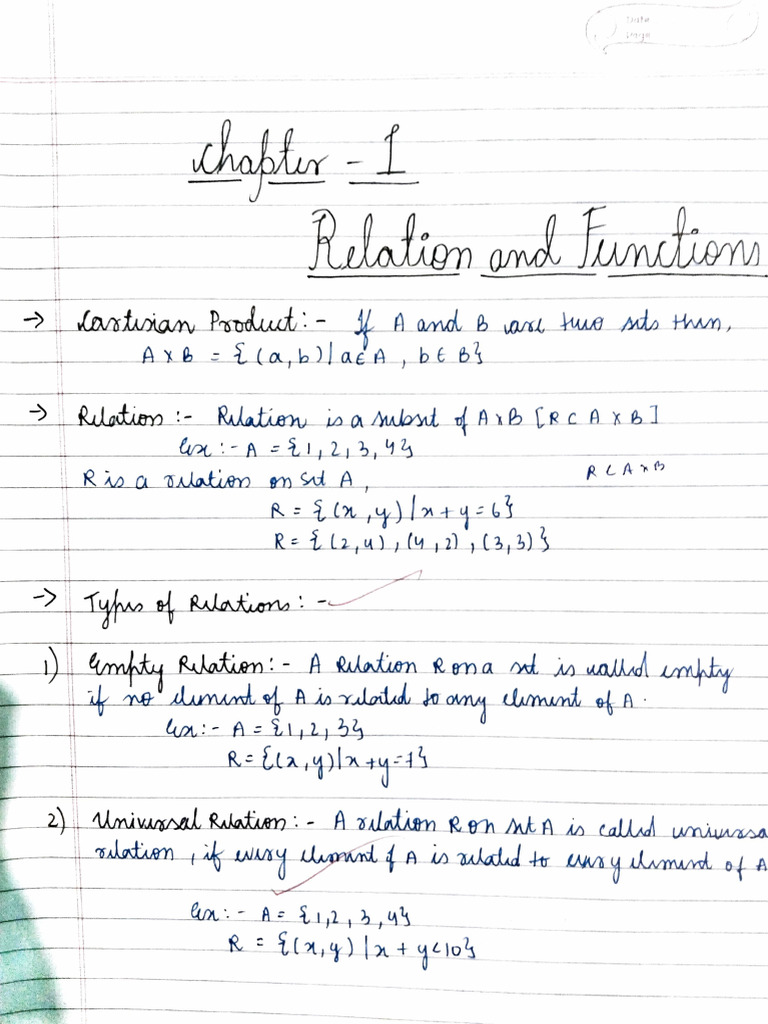 Date
Page
Chapter - 1
Relation and Functions
→ Cartesian Product :- If A and B are two sets then,
A × B = {(a, b) | a ∈ A , b ∈ B}
→ Relation :- Relation is a subset of A×B [R ⊂ A × B]
Ex :- A = {1, 2, 3, 4}
R ⊂ A × B
R is a relation on set A,
R = {(x, y) | x + y = 6}
R = {(2, 4) , (4, 2) , (3, 3)}
→ Types of Relations : -
1) Empty Relation : - A Relation R on a set is called empty
if no element of A is related to any element of A.
Ex :- A = {1, 2, 3}
R = {(x, y) | x + y = 7}
2) Universal Relation : - A relation R on set A is called universa
relation , if every element of A is related to every element of A
Ex : - A = {1, 2, 3, 4}
R = {(x, y) | x + y < 10}